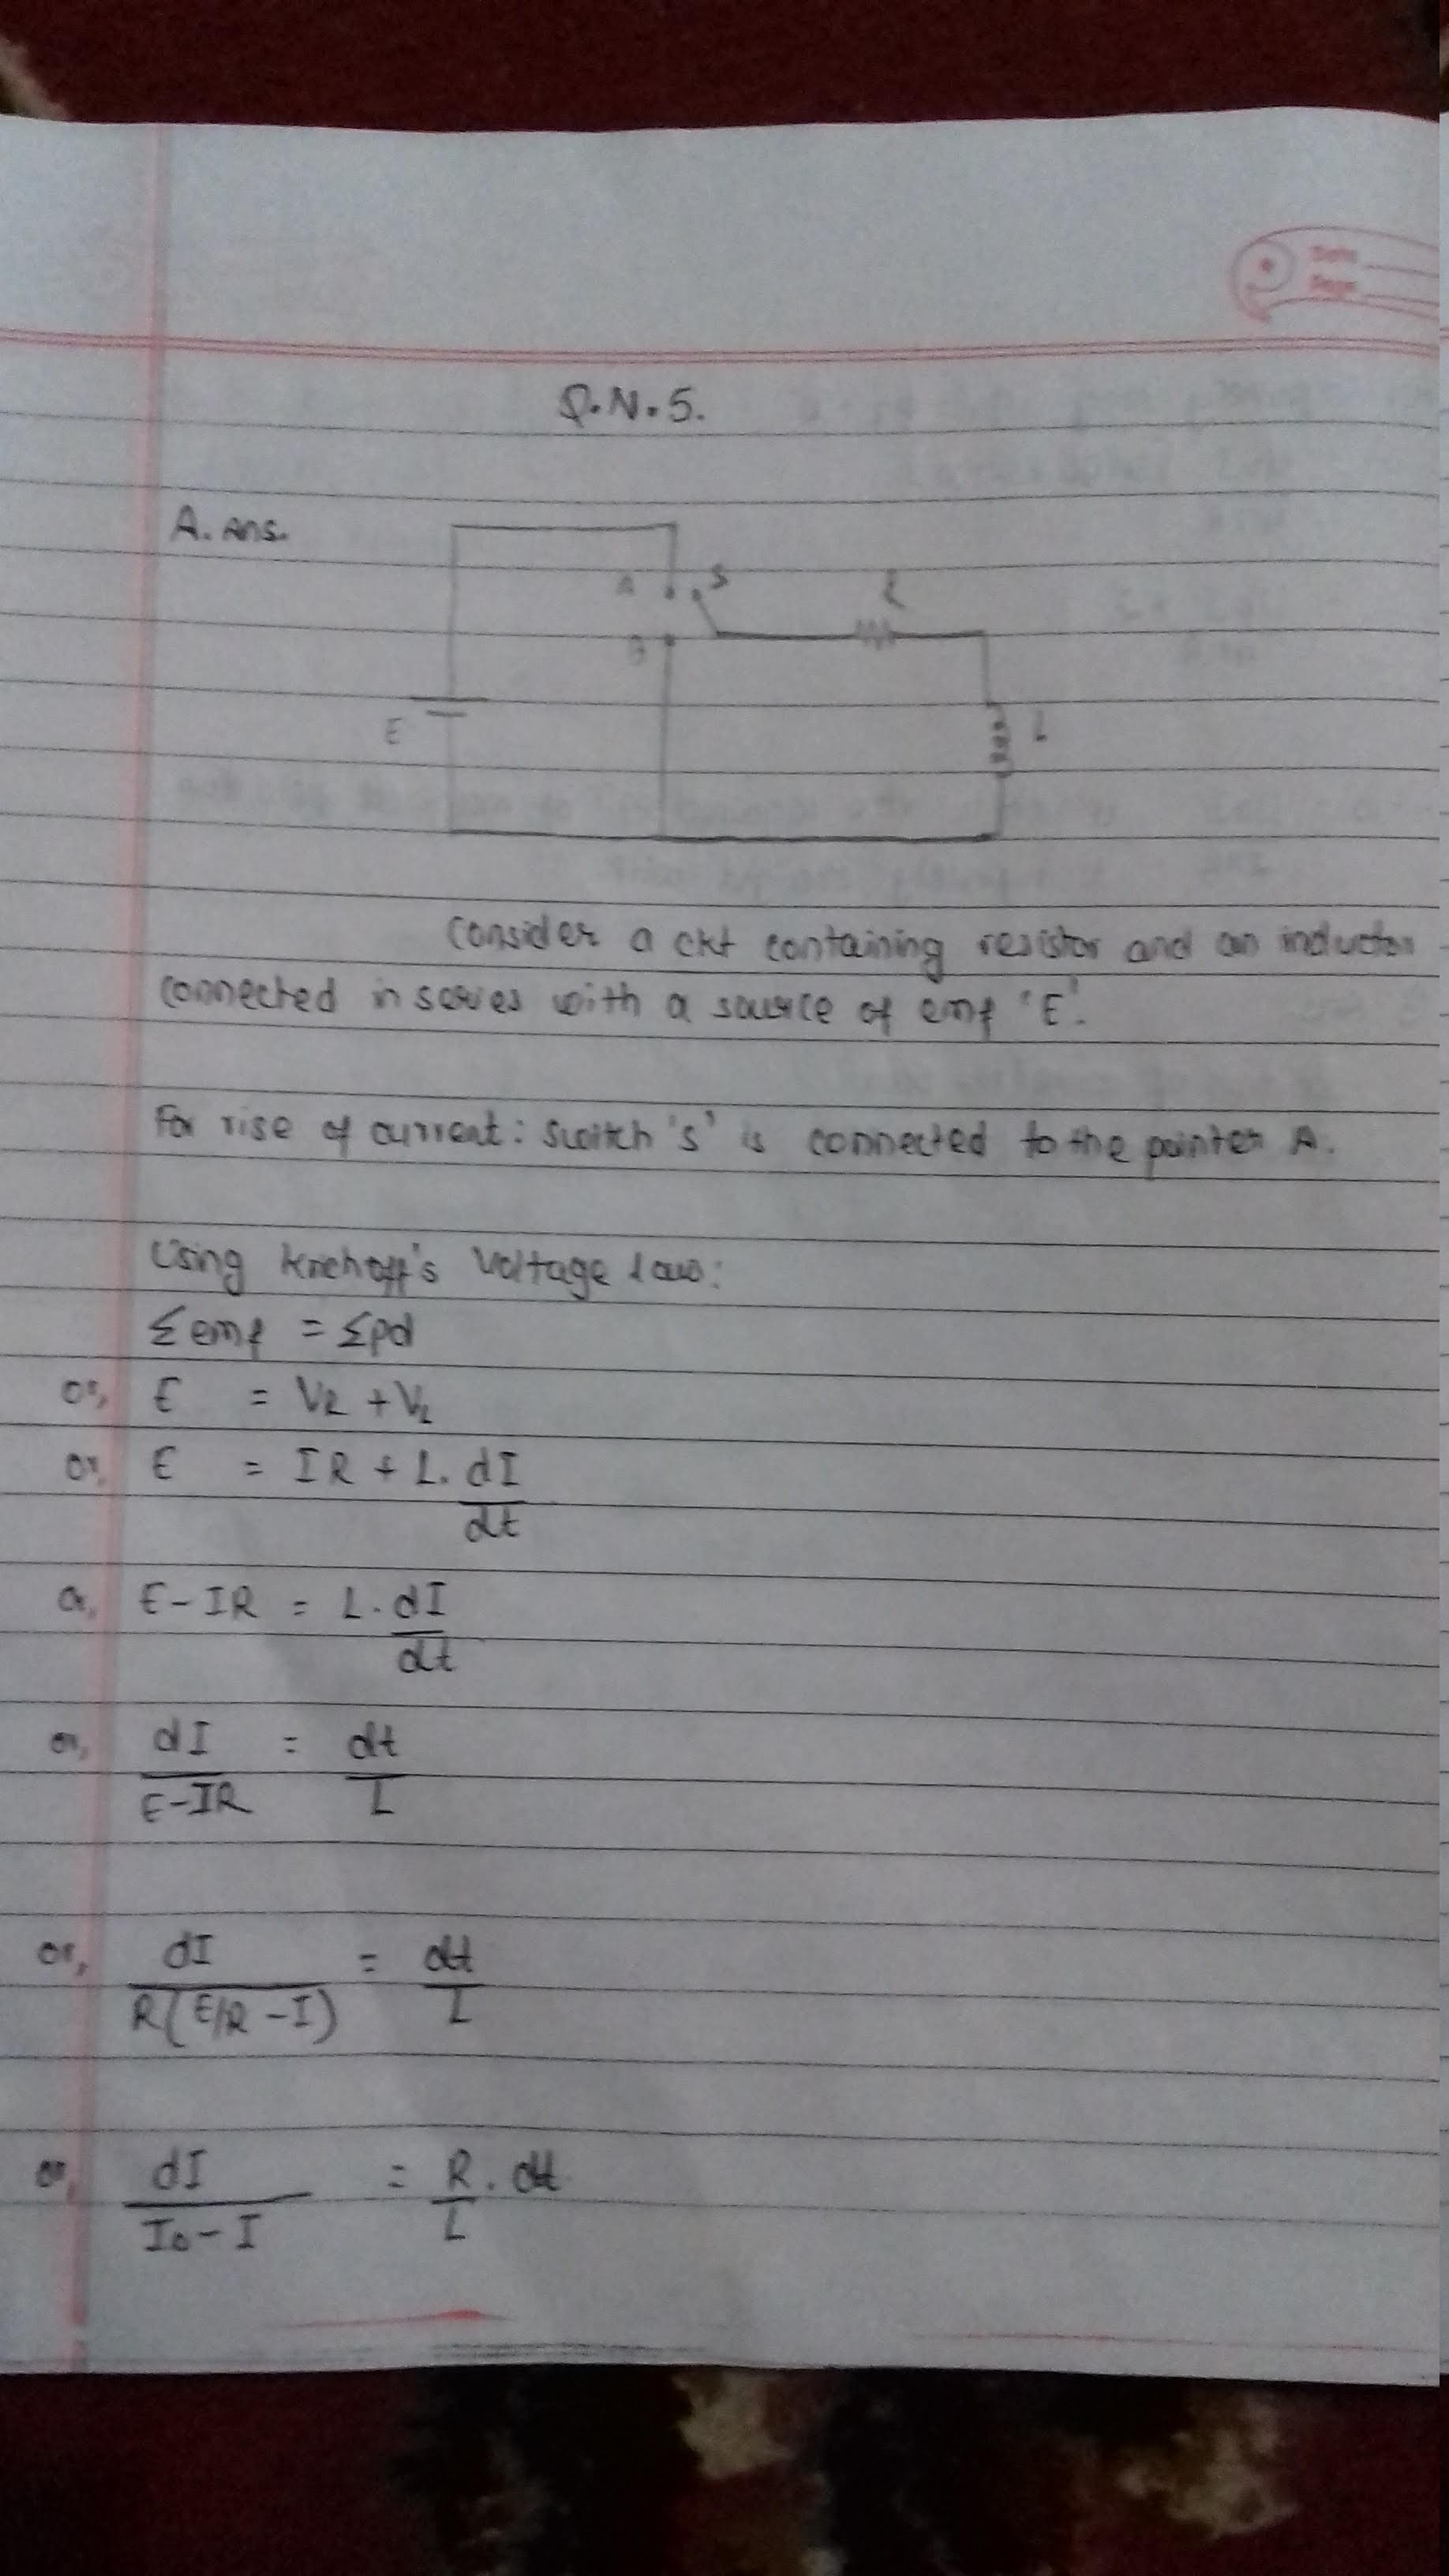 Date
Page
Q.N.5.
A. ans.
A
S
R
B
E
L
Consider a ckt containing resistor and an inductor
connected in series with a source of emf 'E'.
For rise of current: switch 's' is connected to the pointer A.
Using Krichoff's Voltage law:
Σ emf = Σpd
or, E = VR + VL
or, E = IR + L. dI/dt
or, E - IR = L. dI/dt
or, dI/E-IR = dt/L
or, dI/R(E/R - I) = dt/L
or, dI/I0 - I = R/L . dt